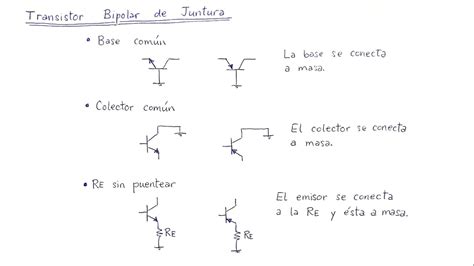 Transistor Bipolar de Juntura
• Base común
La base se conecta
a masa.
• Colector común
El colector se conecta
a masa.
• RE sin puentear
El emisor se conecta
a la RE y ésta a masa.
RE
RE